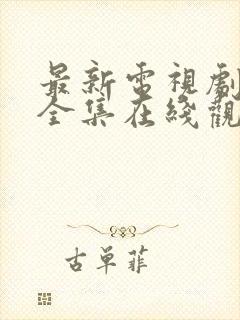 最新電視劇
全集在綫觀
古單菲